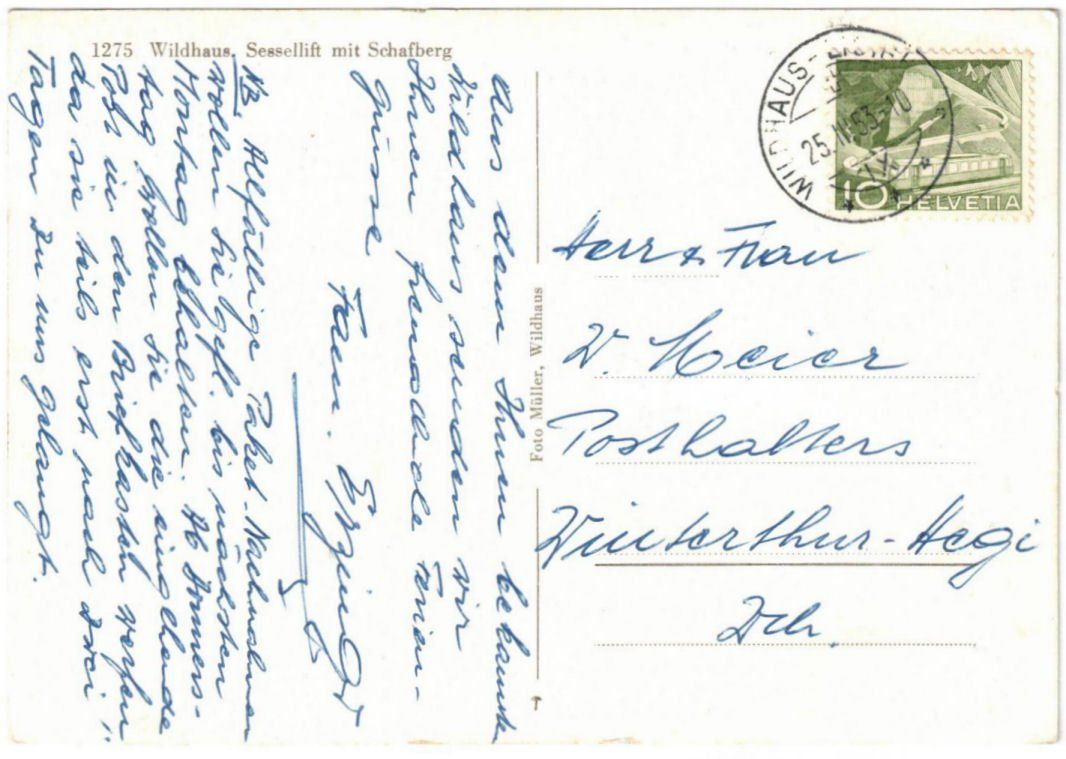 1275 Wildhaus. Sessellift mit Schafberg
Aus dem Ihnen bekannten
Wildhaus senden wir
Ihnen freundliche Ferien-
grüsse
Fam.
NB Allfällige Paket-Nachnahmen
wollen Sie gefl. bis nächsten
Montag behalten. Ab Donners-
tag wollen Sie die eingehende
Post in den Briefkasten werfen
da sie teils erst nach drei
Tagen zu uns gelangt.
Foto Müller, Wildhaus
WILDHAUS-
25. 53-10
10 HELVETIA
Herr & Frau
W. Meier
Posthalters
Winterthur-Hegi